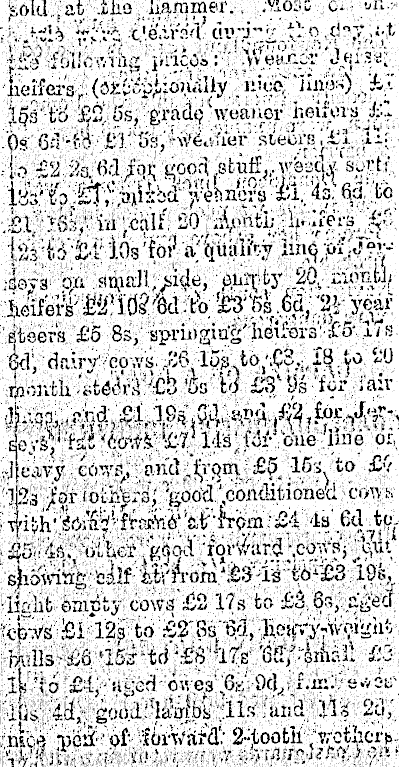 sold at the hammer. Most of the
cattle were cleared during the day at
the following prices: Weaner Jersey
heifers, (exceptionally nice lines)
15s to £2 5s, grade weaner heifers £1
0s 6d to £1 5s, weaner steers £1
to £2 2s 6d for good stuff, weedy sorts
to £1, mixed weaners £1 4s 6d to
£1 16s, in calf 20 month heifers
12s to £4 10s for a quality line of Jer-
seys on small side, empty 20 month
heifers £2 10s 6d to £3 5s 6d, 2½ year
steers £5 8s, springing heifers £5 17s
6d, dairy cows £6 15s to 18 to 20
month steers £3 5s to £3 9s for fair
and £1 19s 6d and £2 for Jer-
seys, fat cows £7 14s for one line of
heavy cows, and from £5 15s to
12s for others, good conditioned cows
with some frame at from £4 4s 6d to
£5 4s, other good forward cows, but
showing calf at from £3 1s to £3 19s,
light empty cows £2 17s to £3 6s, aged
cows £1 12s to £2 8s 6d, heavy-weight
bulls £6 15s to £8 17s 6d, small £3
1s to £4, aged ewes 6s 9d, f.m. ewes
4d, good lambs 11s and 11s 2d,
nice pen of forward 2-tooth wethers